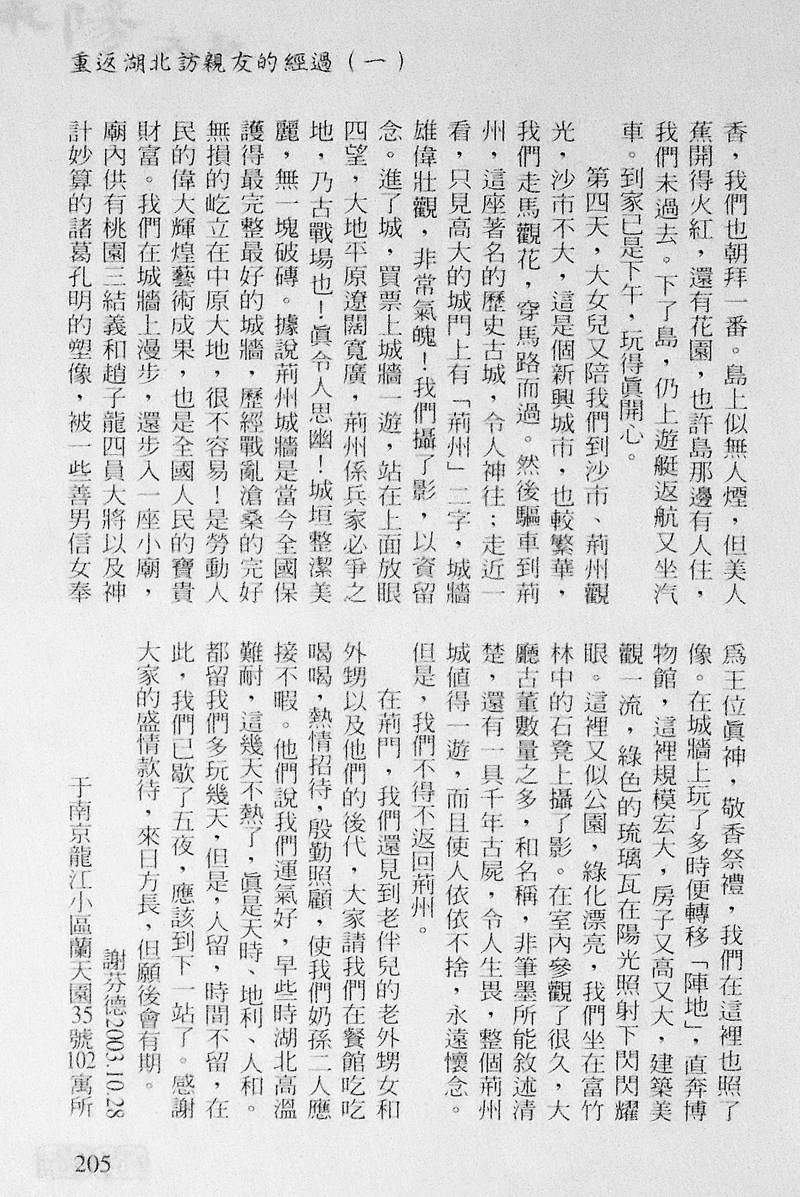 重返湖北訪親友的經過（一）
香，我們也朝拜一番。島上似無人煙，但美人
蕉開得火紅，還有花園，也許島那邊有人住，
我們未過去。下了島，仍上遊艇返航又坐汽
車。到家已是下午，玩得眞開心。
第四天，大女兒又陪我們到沙市、荊州觀
光，沙市不大，這是個新興城市，也較繁華，
我們走馬觀花，穿馬路而過。然後驅車到荊
州，這座著名的歷史古城，令人神往；走近一
看，只見高大的城門上有「荊州」二字，城牆
雄偉壯觀，非常氣魄！我們攝了影，以資留
念。進了城，買票上城牆一遊，站在上面放眼
四望，大地平原遼闊寬廣，荊州係兵家必爭之
地，乃古戰場也！眞令人思幽！城垣整潔美
麗，無一塊破磚。據說荊州城牆是當今全國保
護得最完整最好的城牆，歷經戰亂滄桑的完好
無損的屹立在中原大地，很不容易！是勞動人
民的偉大輝煌藝術成果，也是全國人民的寶貴
財富。我們在城牆上漫步，還步入一座小廟，
廟內供有桃園三結義和趙子龍四員大將以及神
計妙算的諸葛孔明的塑像，被一些善男信女奉
爲王位眞神，敬香祭禮，我們在這裡也照了
像。在城牆上玩了多時便轉移「陣地」，直奔博
物館，這裡規模宏大，房子又高又大，建築美
觀一流，綠色的琉璃瓦在陽光照射下閃閃耀
眼。這裡又似公園，綠化漂亮，我們坐在富竹
林中的石凳上攝了影。在室內參觀了很久，大
廳古董數量之多，和名稱，非筆墨所能敘述清
楚，還有一具千年古屍，令人生畏，整個荊州
城値得一遊，而且使人依依不捨，永遠懷念。
但是，我們不得不返回荊州。
在荊門，我們還見到老伴兒的老外甥女和
外甥以及他們的後代，大家請我們在餐館吃吃
喝喝，熱情招待，殷勤照顧，使我們奶孫二人應
接不暇。他們說我們運氣好，早些時湖北高溫
難耐，這幾天不熱了，眞是天時、地利、人和。
都留我們多玩幾天，但是，人留，時間不留，在
此，我們已歇了五夜，應該到下一站了。感謝
大家的盛情款待，來日方長，但願後會有期。
謝芬德2003.10.28
于南京龍江小區蘭天園35號102寓所
205